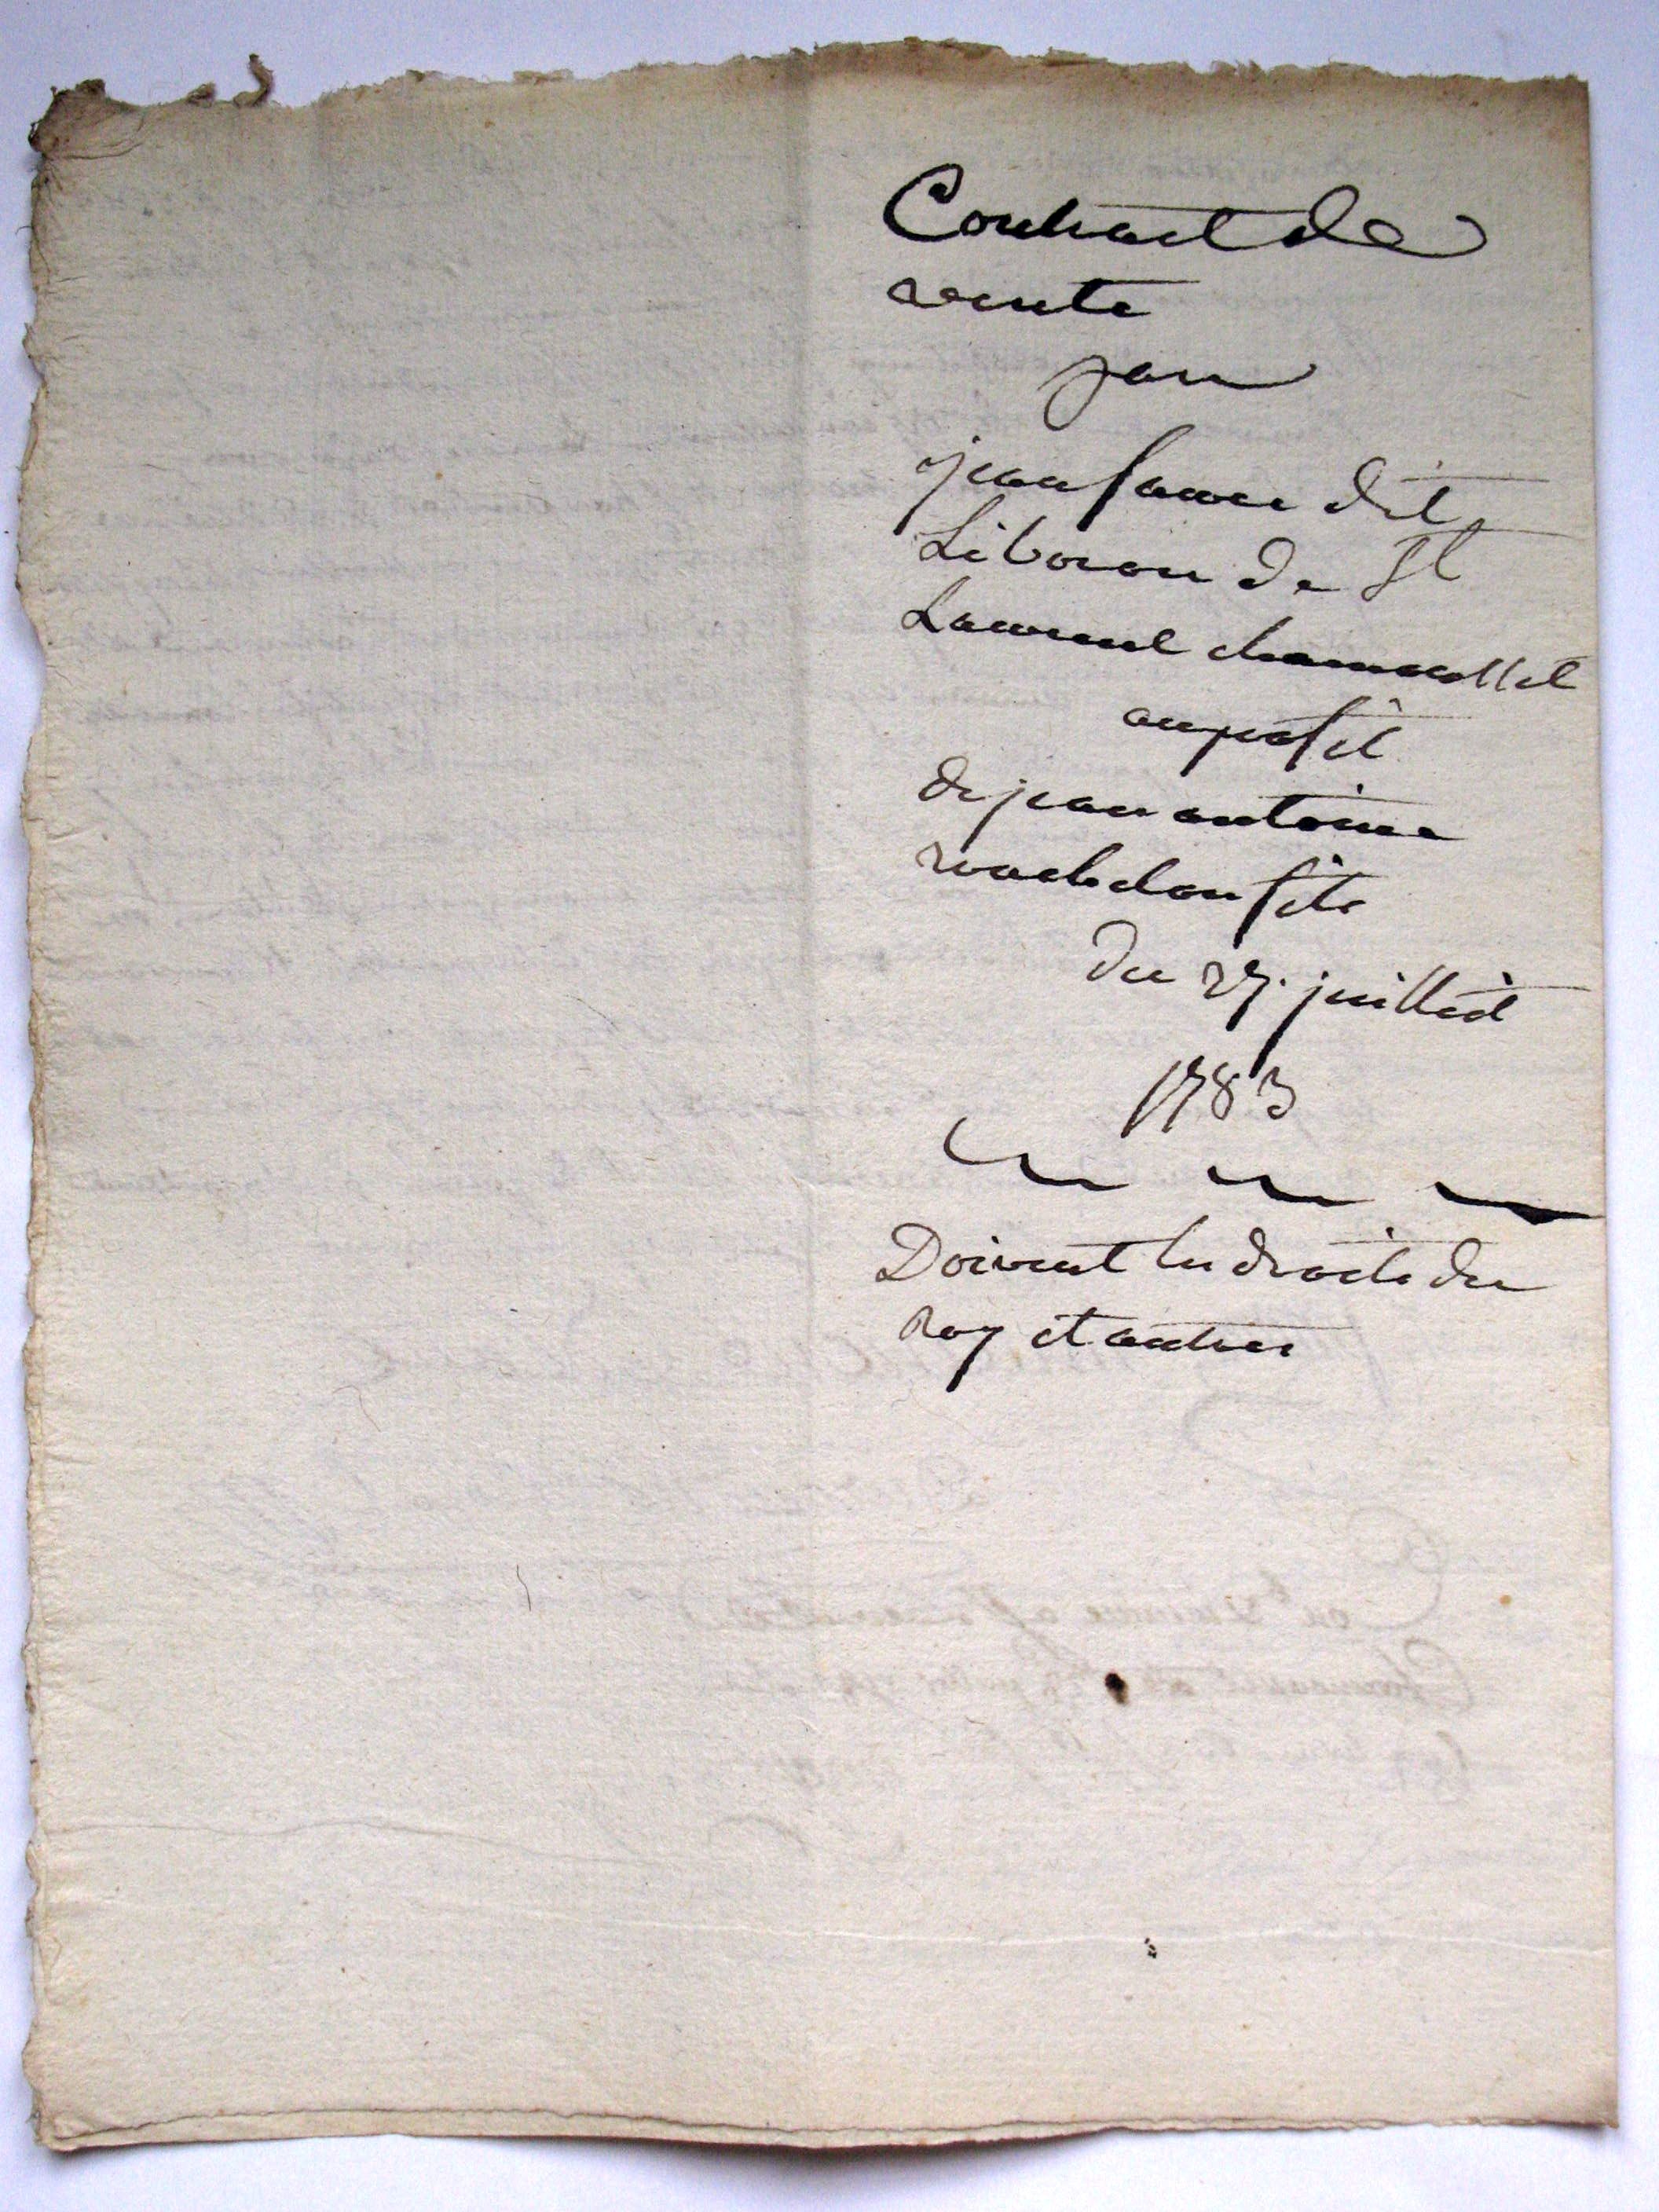 Contract de
vente
par
jean faure dit
Liboron de St
Laurent chamousset
au profit
de jean antoine
du 27. juillet
1783
Doivent les droits du
roy et autres